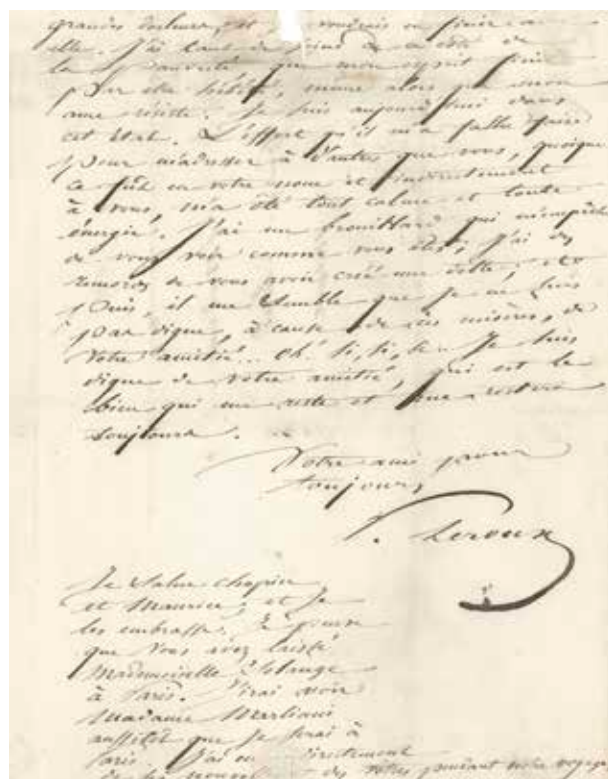 grandes douleurs, et je voudrais en finir avec
elle. J'ai tant de soins de ce côté de
la pauvreté que mon esprit finit
par être hébété, même alors que mon
ame résiste. Je suis aujourd'hui dans
cet état. L'effort qu'il m'a fallu faire
pour m'adresser à d'autres que vous, quoique
ce fût en votre nom et indirectement
à vous, m'a ôté tout calme et toute
énergie. J'ai un brouillard qui m'empêche
de vous voir comme vous êtes; j'ai des
remords de vous avoir créé une dette; et
puis, il me semble que je ne suis
pas digne, à cause de ces misères, de
votre amitié... Oh! si, si, si. Je suis
digne de votre amitié, qui est le
bien qui me reste et me restera
toujours.
Votre ami pour
toujours,
P. Leroux
Je salue Chopin
et Maurice, et je
les embrasse. Je pense
que vous avez laissé
Mademoiselle Solange
à Paris. J'irai voir
Madame Marliani
aussitôt que je serai à
Paris. J'ai eu directement
de ses nouvelles et des vôtres pendant votre voyage